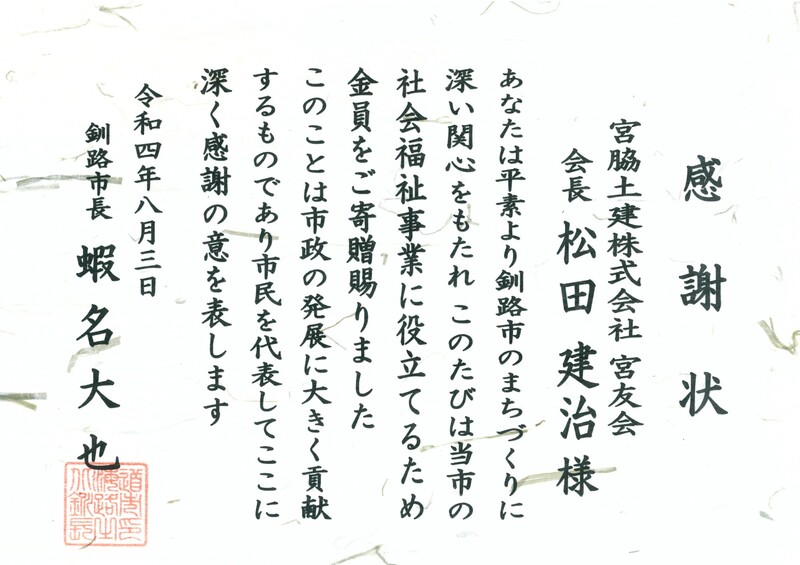 感謝状
宮脇土建株式会社 宮友会
会長 松田 建治 様
あなたは平素より釧路市のまちづくりに
深い関心をもたれ このたびは当市の
社会福祉事業に役立てるため
金員をご寄贈賜りました
このことは市政の発展に大きく貢献
するものであり市民を代表してここに
深く感謝の意を表します
令和四年八月三日
釧路市長 蝦名大也